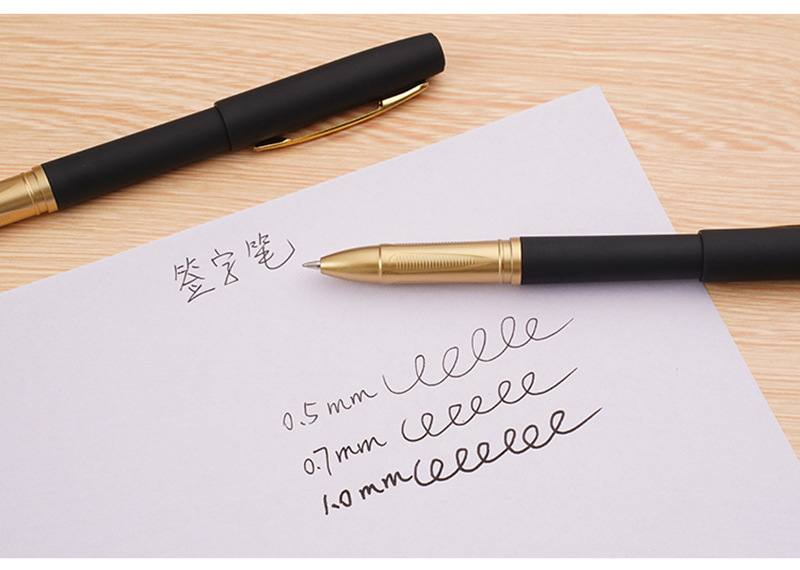 签字笔
0.5mm
0.7mm
1.0mm